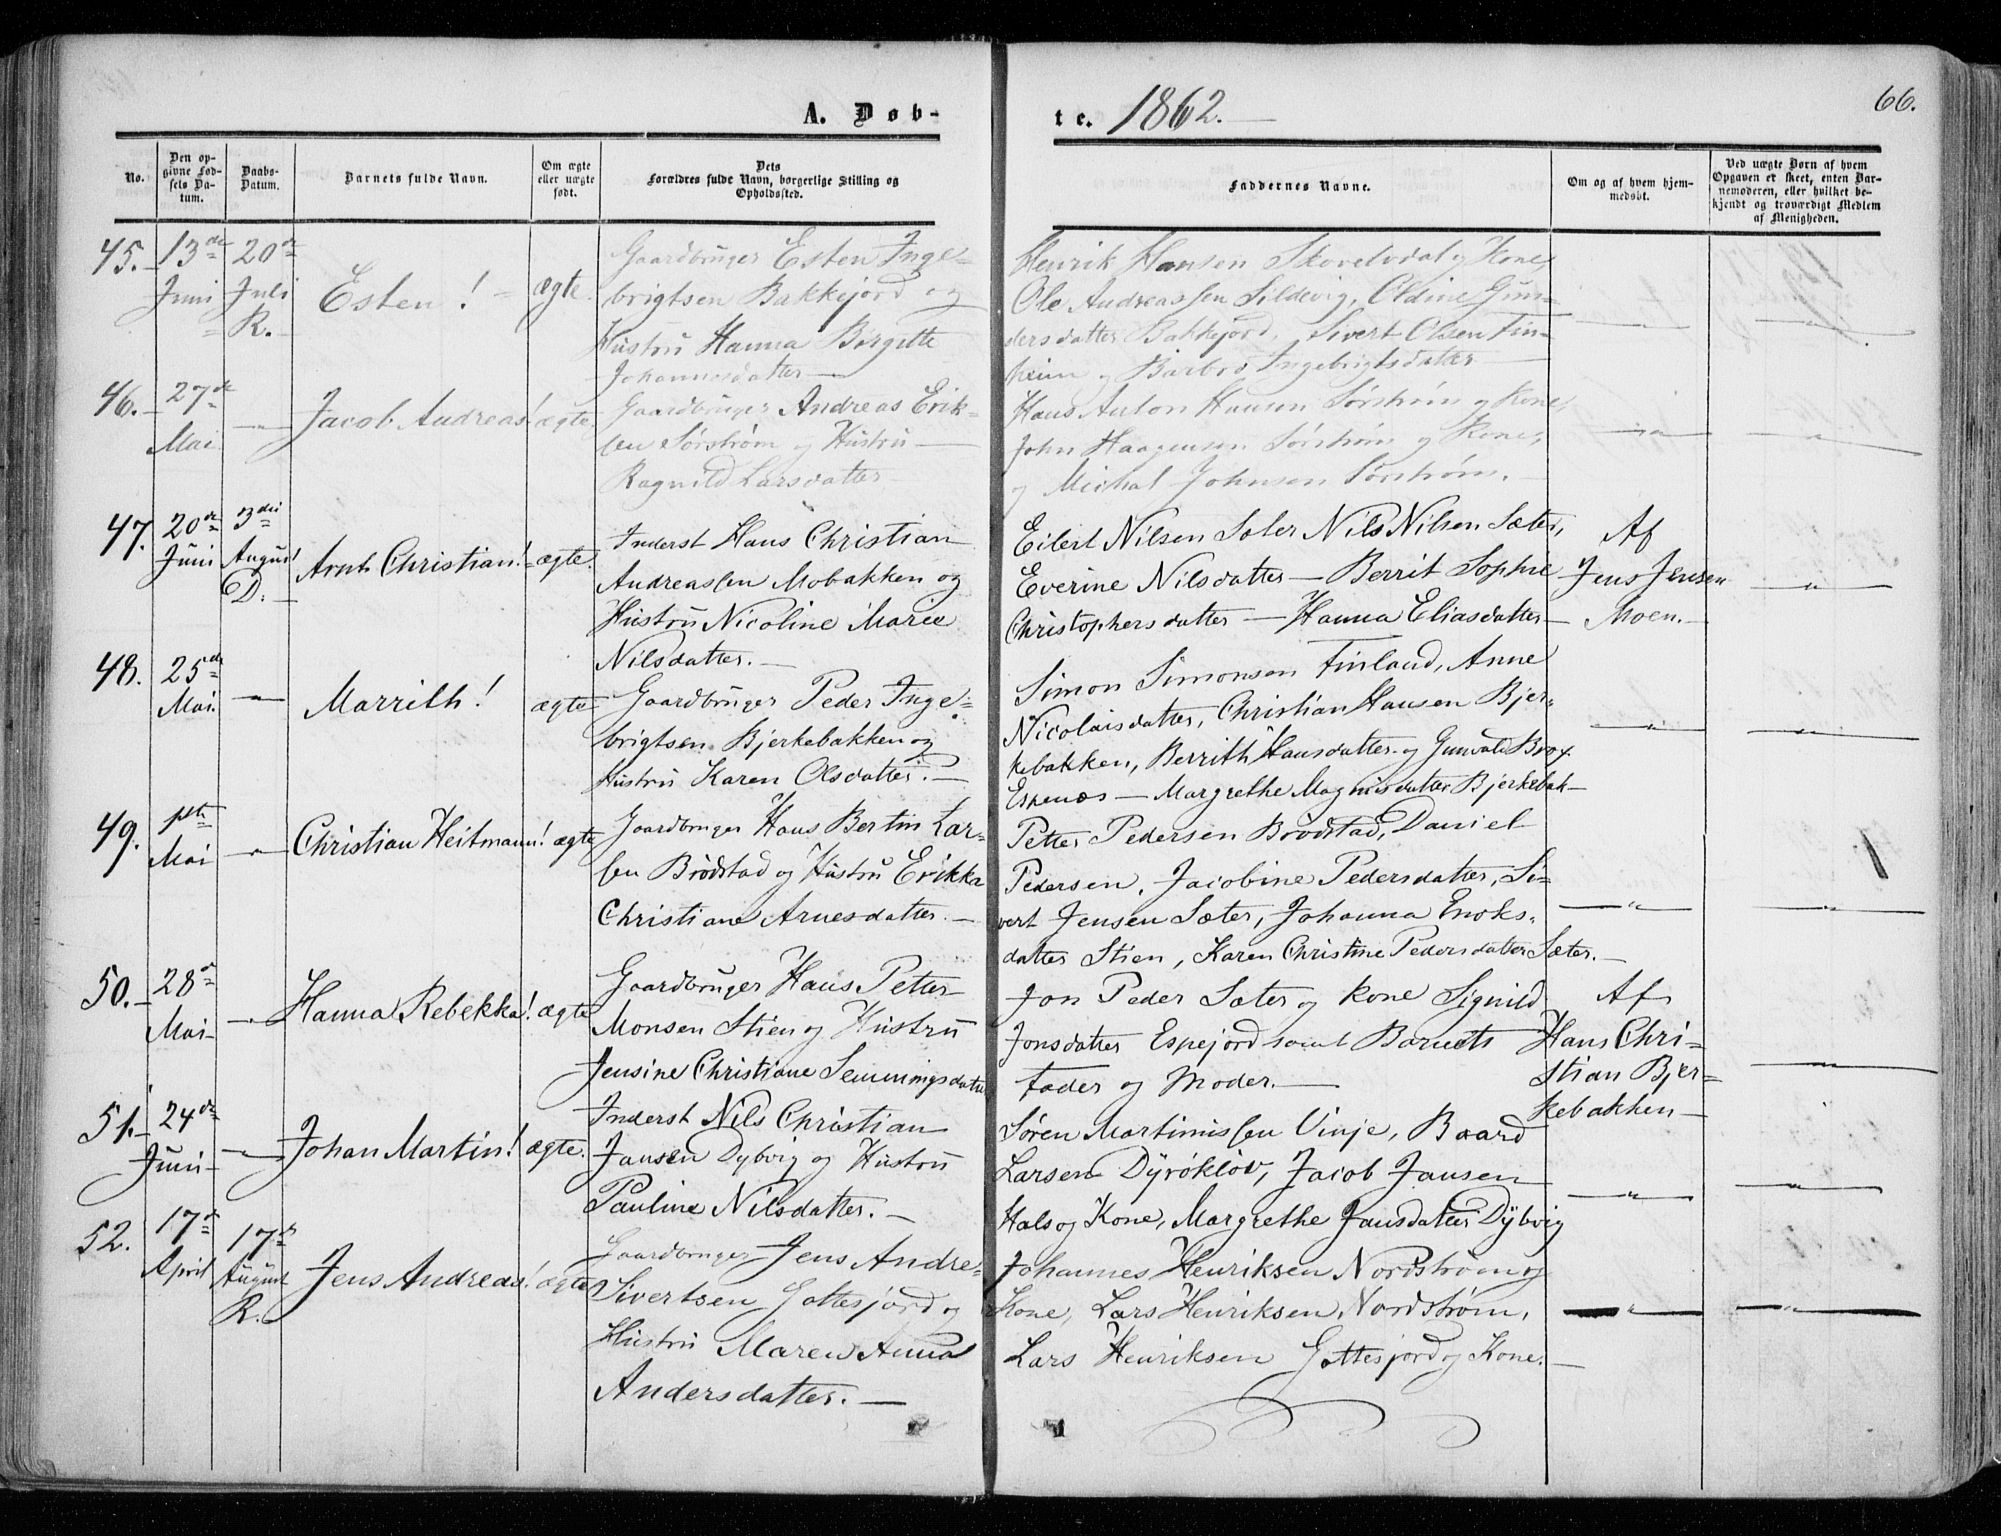 A. Døb-
te. 1862.
66.
No.
Den op-
givne Fød-
sels Da-
tum.
Daabs-
Datum.
Barnets fulde Navn.
Om ægte
eller uægte
født.
Dets
Forældres fulde Navn, borgerlige Stilling og
Opholdssted.
Faddernes Navne.
Om og af hvem hjem-
medøbt.
Ved uægte Børn af hvem
Opgaven er skeet, enten Bar-
nemoderen, eller hvilket be-
kjendt og troværdigt Medlem
af Menigheden.
45.
13de
Juni
20de
Juli
R.
Esten!
ægte.
Gaardbruger Esten Inge-
brigtsen Bakkejord og
Hustru Hanna Birgitte
Johannesdatter
Henrik Hansen og Kone,
Ole Andreassen Sildvig, Oldine Gun-
dersdatter Bakkejord, Sivert Olsen Fin-
heim og Barbro Ingebrigtsdatter
46.
27de
Mai
Jacob Andreas!
ægte
Gaardbruger Andreas Erik-
sen Sørstrøm og Hustru
Ragnild Larsdatter
Hans Anton Hansen Sørstrøm og Kone,
John Haagensen Sørstrøm og Kone,
og Michal Johnsen Sørstrøm.
47.
20de
Juni
3die
August
D.
Arnt Christian!
ægte.
Inderst Hans Christian
Andreassen Mobakken og
Hustru Nicoline Marie
Nilsdatter.
Eilert Nilsen Sæter Nils Nilsen Sæter,
Everine Nilsdatter – Berrit Sophie
Christophersdatter – Hanna Eliasdatter
Af
Jens Jensen
Moen.
48.
25de
Mai.
Marrith!
ægte
Gaardbruger Peder Inge-
brigtsen Bjerkebakken og
Hustru Karen Olsdatter.
Simon Simonsen Finland, Anne
Nicolaisdatter, Christian Hansen Bjer-
kebakken, Berrith Hansdatter og
Espenæs – Margrethe Magnusdatter Bjerkebak-
49.
Mai
Christian Heitmann!
ægte
Gaardbruger Hans Bertin Lar-
sen Brødstad og Hustru Erikka
Christiane Arnesdatter.
Petter Pedersen Brødstad, Daniel
Pedersen, Jacobine Pedersdatter, Si-
vert Jensen Sæter, Johanna Enoks-
datter Stien, Karen Christine Pedersdatter Sæter.
50.
28de
Mai
Hanna Rebekka!
ægte
Gaardbruger Hans Petter
Monsen Stien og Hustru
Jensine Christiane Semmingsdatter
Jon Peder Sæter og Kone Signild
Jonsdatter Espejord samt Barnets
Fader og Moder.
Af
Hans Chri-
stian Bjer-
kebakken
51.
24de
Juni
Johan Martin!
ægte.
Inderst Nils Christian
Jansen Dybvig og Hustru
Pauline Nilsdatter.
Søren Martinussen Vinje, Baard
Larsen Dyrøkløv, Jacob Jansen
Hals og Kone, Margrethe Jansdatter Dybvig
52.
17de
April
17de
August
R.
Jens Andreas!
ægte
Gaardbruger Jens Andre-
Sivertsen Gottesjord og
Hustru Maren Anna
Andersdatter.
Johannes Henriksen Nordstrøm og
Kone, Lars Henriksen Nordstrøm,
Lars Henriksen Gottesjord og Kone.